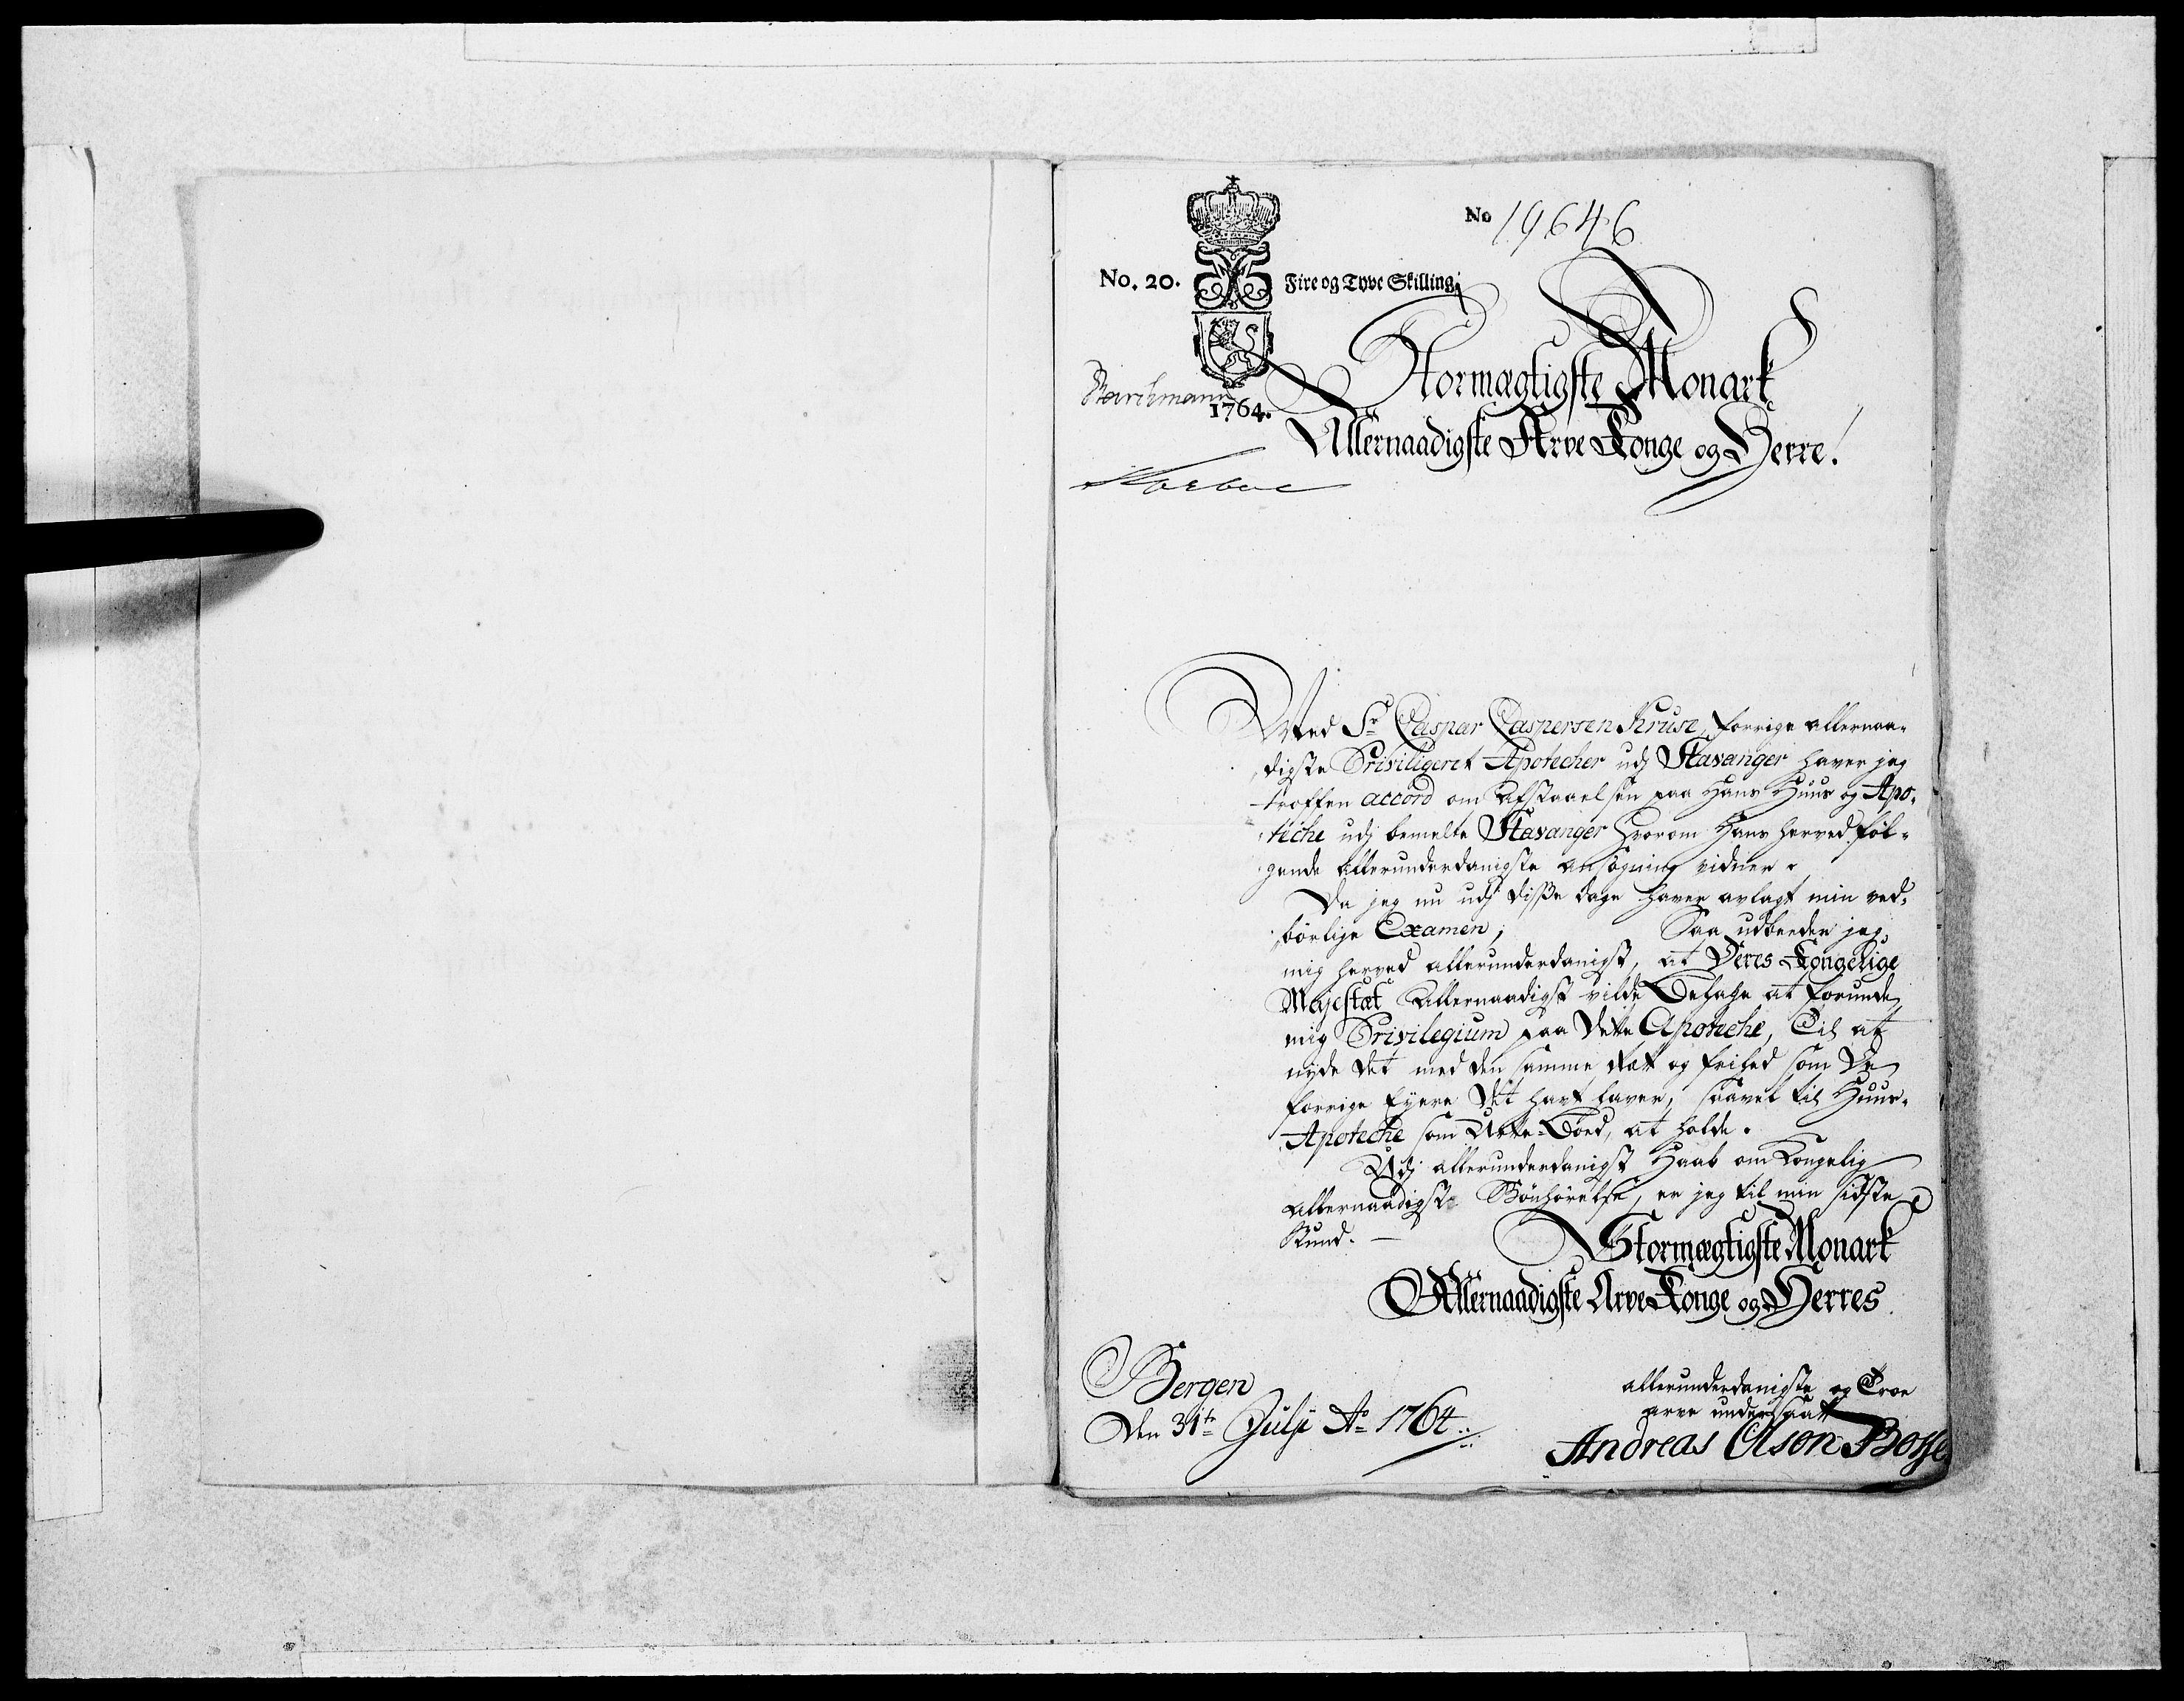 No 19646
No. 20. Fire og Tyve Skilling.
1764.
Stormægtigste Monark
Allernaadigste Arve Konge og Herre!
Med Sr Caspar Caspersen Kruse, forrige allernaa-
digste Priviligeret Apotecher udj Stavanger haver jeg
troffen accord om Afstaaelsen paa Hans Huus og Apo-
teche udj bemelte Stavanger hvorom Hans herved føl-
gende allerunderdanigste ansøgning vidner.
Da jeg nu udj disse dage haver avlagt min ved-
børlige Examen; Saa udbeeder jeg
mig herved allerunderdanigst, at Deres Kongelige
Majestæt Allernaadigst vilde Behage at forunde
mig Privilegium paa dette Apoteche, Til at
nyde det med den samme Ræt og frihed som De
forrige Eyere det hart haver, saavel til Huus-
Apoteche som at holde.
Udj allerunderdanigst Haab om Kongelig
allernaadigste Bønhørelse, er jeg til min sidste
Stund.
Stormægtigste Monark
Allernaadigste Arve Konge og Herres
Bergen
Den 31te Julii Ao 1764
allerunderdanigste og Troe
arve undersaatt
Andreas Olson Bosse